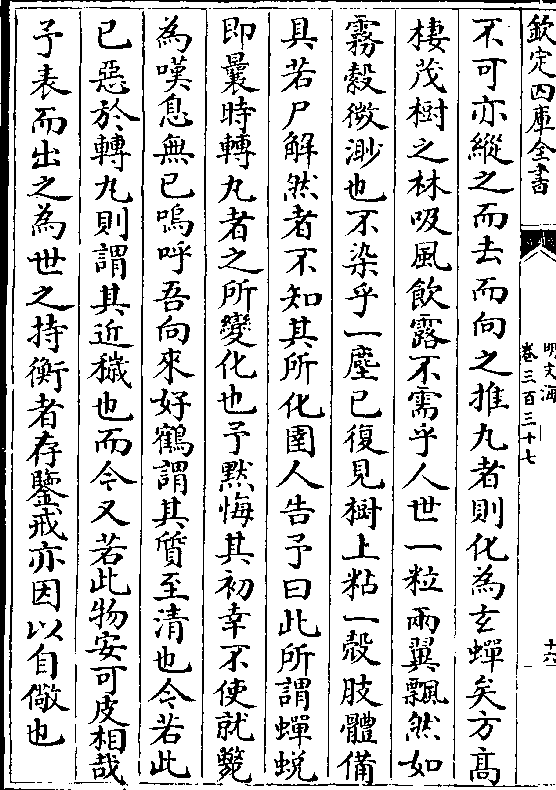 欽定四庫全書
明文海
卷三百三十七
十六
不可亦縱之而去而向之推丸者則化為玄蟬矣方髙
棲茂樹之林吸風飲露不需乎人世一粒兩翼飄然如
霧縠微渺也不染乎一塵已復見樹上粘一殼肢體備
具若尸解然者不知其所化圉人告予曰此所謂蟬蛻
即曩時轉丸者之所變化也予黙悔其初幸不使就斃
為嘆息無已嗚呼吾向來好鶴謂其質至清也今若此
已惡於轉丸則謂其近穢也而今又若此物安可皮相哉
予表而出之為世之持衡者存鑒戒亦因以自儆也